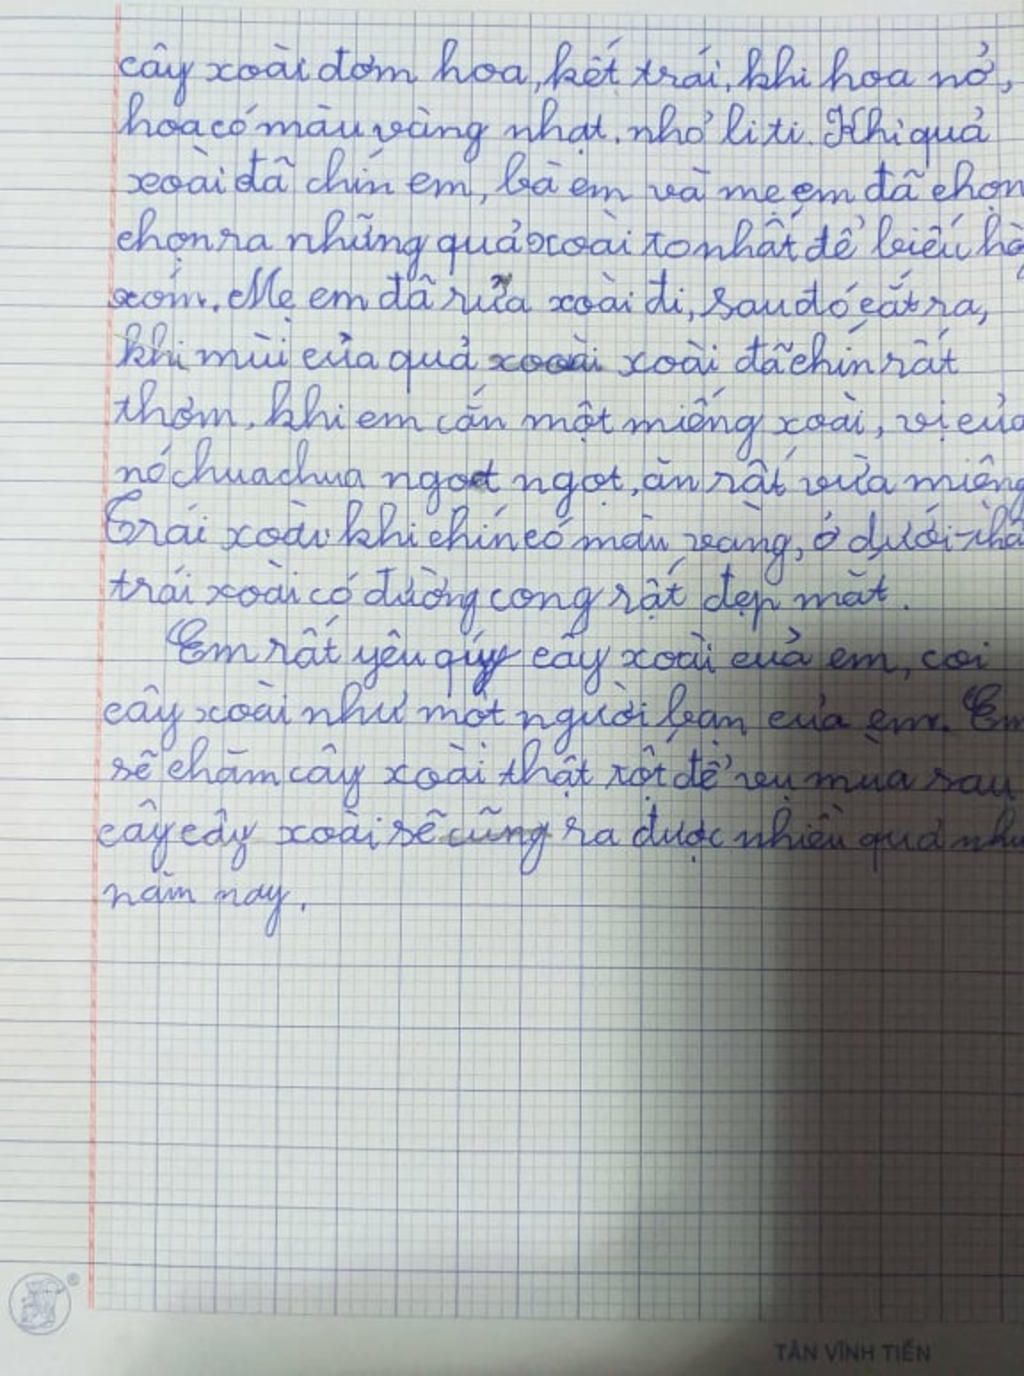 cây xoài đơm hoa, kết trái, khi hoa nở,
hoa có màu vàng nhạt, nhỏ li ti. Khi quả
xoài đã chín em, bà em và mẹ em đã chọn
chọn ra những quả xoài to nhất để biếu hà
xóm. Mẹ em đã rửa xoài đi, sau đó cắt ra,
khi mùi của quả xoài xoài đã chín rất
thơm, khi em cắn một miếng xoài, vị củ
nó chua chua ngọt ngọt, ăn rất vừa miệng
Trái xoài khi chín có màu vàng, ở dưới
trái xoài có đường cong rất đẹp mắt.
Em rất yêu quý cây xoài của em, coi
cây xoài như một người bạn của em. Em
sẽ chăm cây xoài thật tốt để vụ mùa sau
cây cây xoài sẽ cũng ra được nhiều quả như
năm nay.
TÂN VĨNH TIẾN